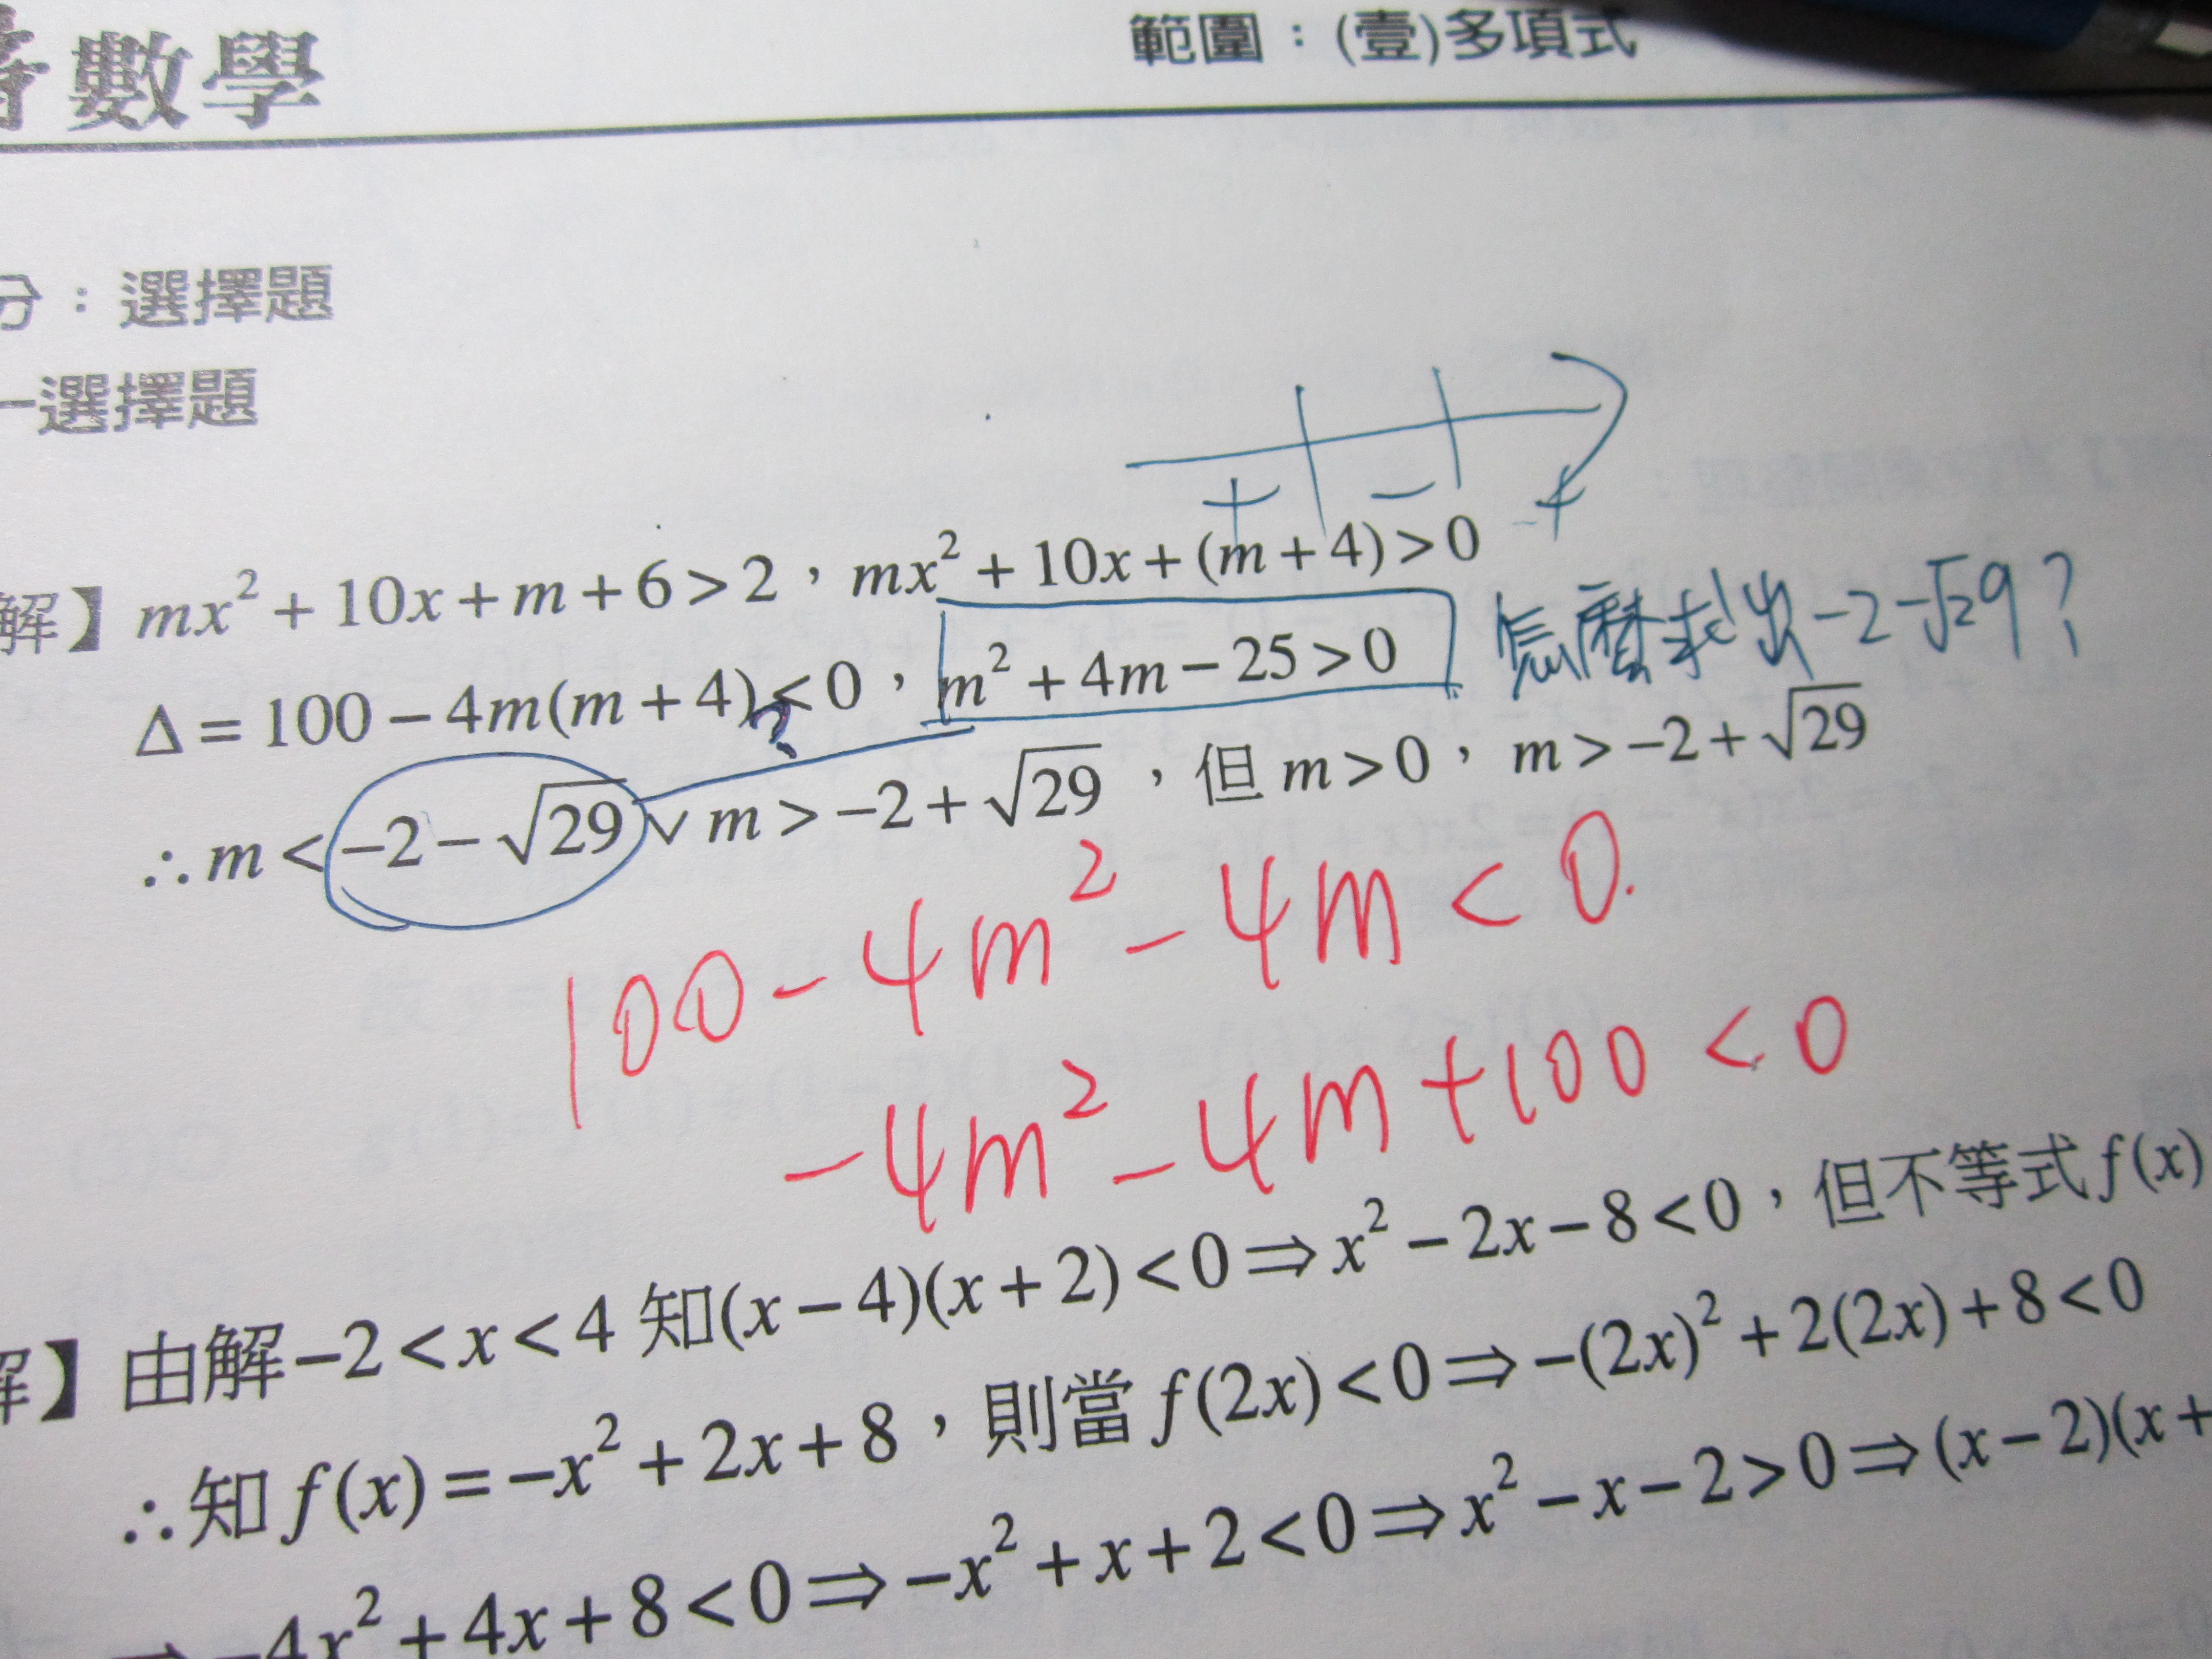 數學
範圍：(壹)多項式
分：選擇題
一選擇題
+ − +
解】mx² + 10x + m + 6 > 2，mx² + 10x + (m + 4) > 0
Δ = 100 − 4m(m + 4) < 0，m² + 4m − 25 > 0 怎麼求出 −2−√29？
?
∴ m < −2 − √29 ∨ m > −2 + √29，但 m > 0，m > −2 + √29
100 − 4m² − 4m < 0.
−4m² − 4m + 100 < 0
解】由解 −2 < x < 4 知(x − 4)(x + 2) < 0 ⇒ x² − 2x − 8 < 0，但不等式 f(x)
∴知 f(x) = −x² + 2x + 8，則當 f(2x) < 0 ⇒ −(2x)² + 2(2x) + 8 < 0
⇒ −4x² + 4x + 8 < 0 ⇒ −x² + x + 2 < 0 ⇒ x² − x − 2 > 0 ⇒ (x − 2)(x +